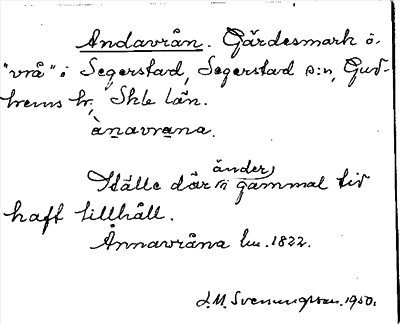 Andavrån. Gärdesmark o.
"vrå" i Segerstad, Segerstad s:n, Gud-
hems hr, Skbg län.
ànavrana.
Ställe där änder i gammal tid
haft tillhåll.
Ånnavråna lm. 1822.
J.M. Svenungsson. 1950.